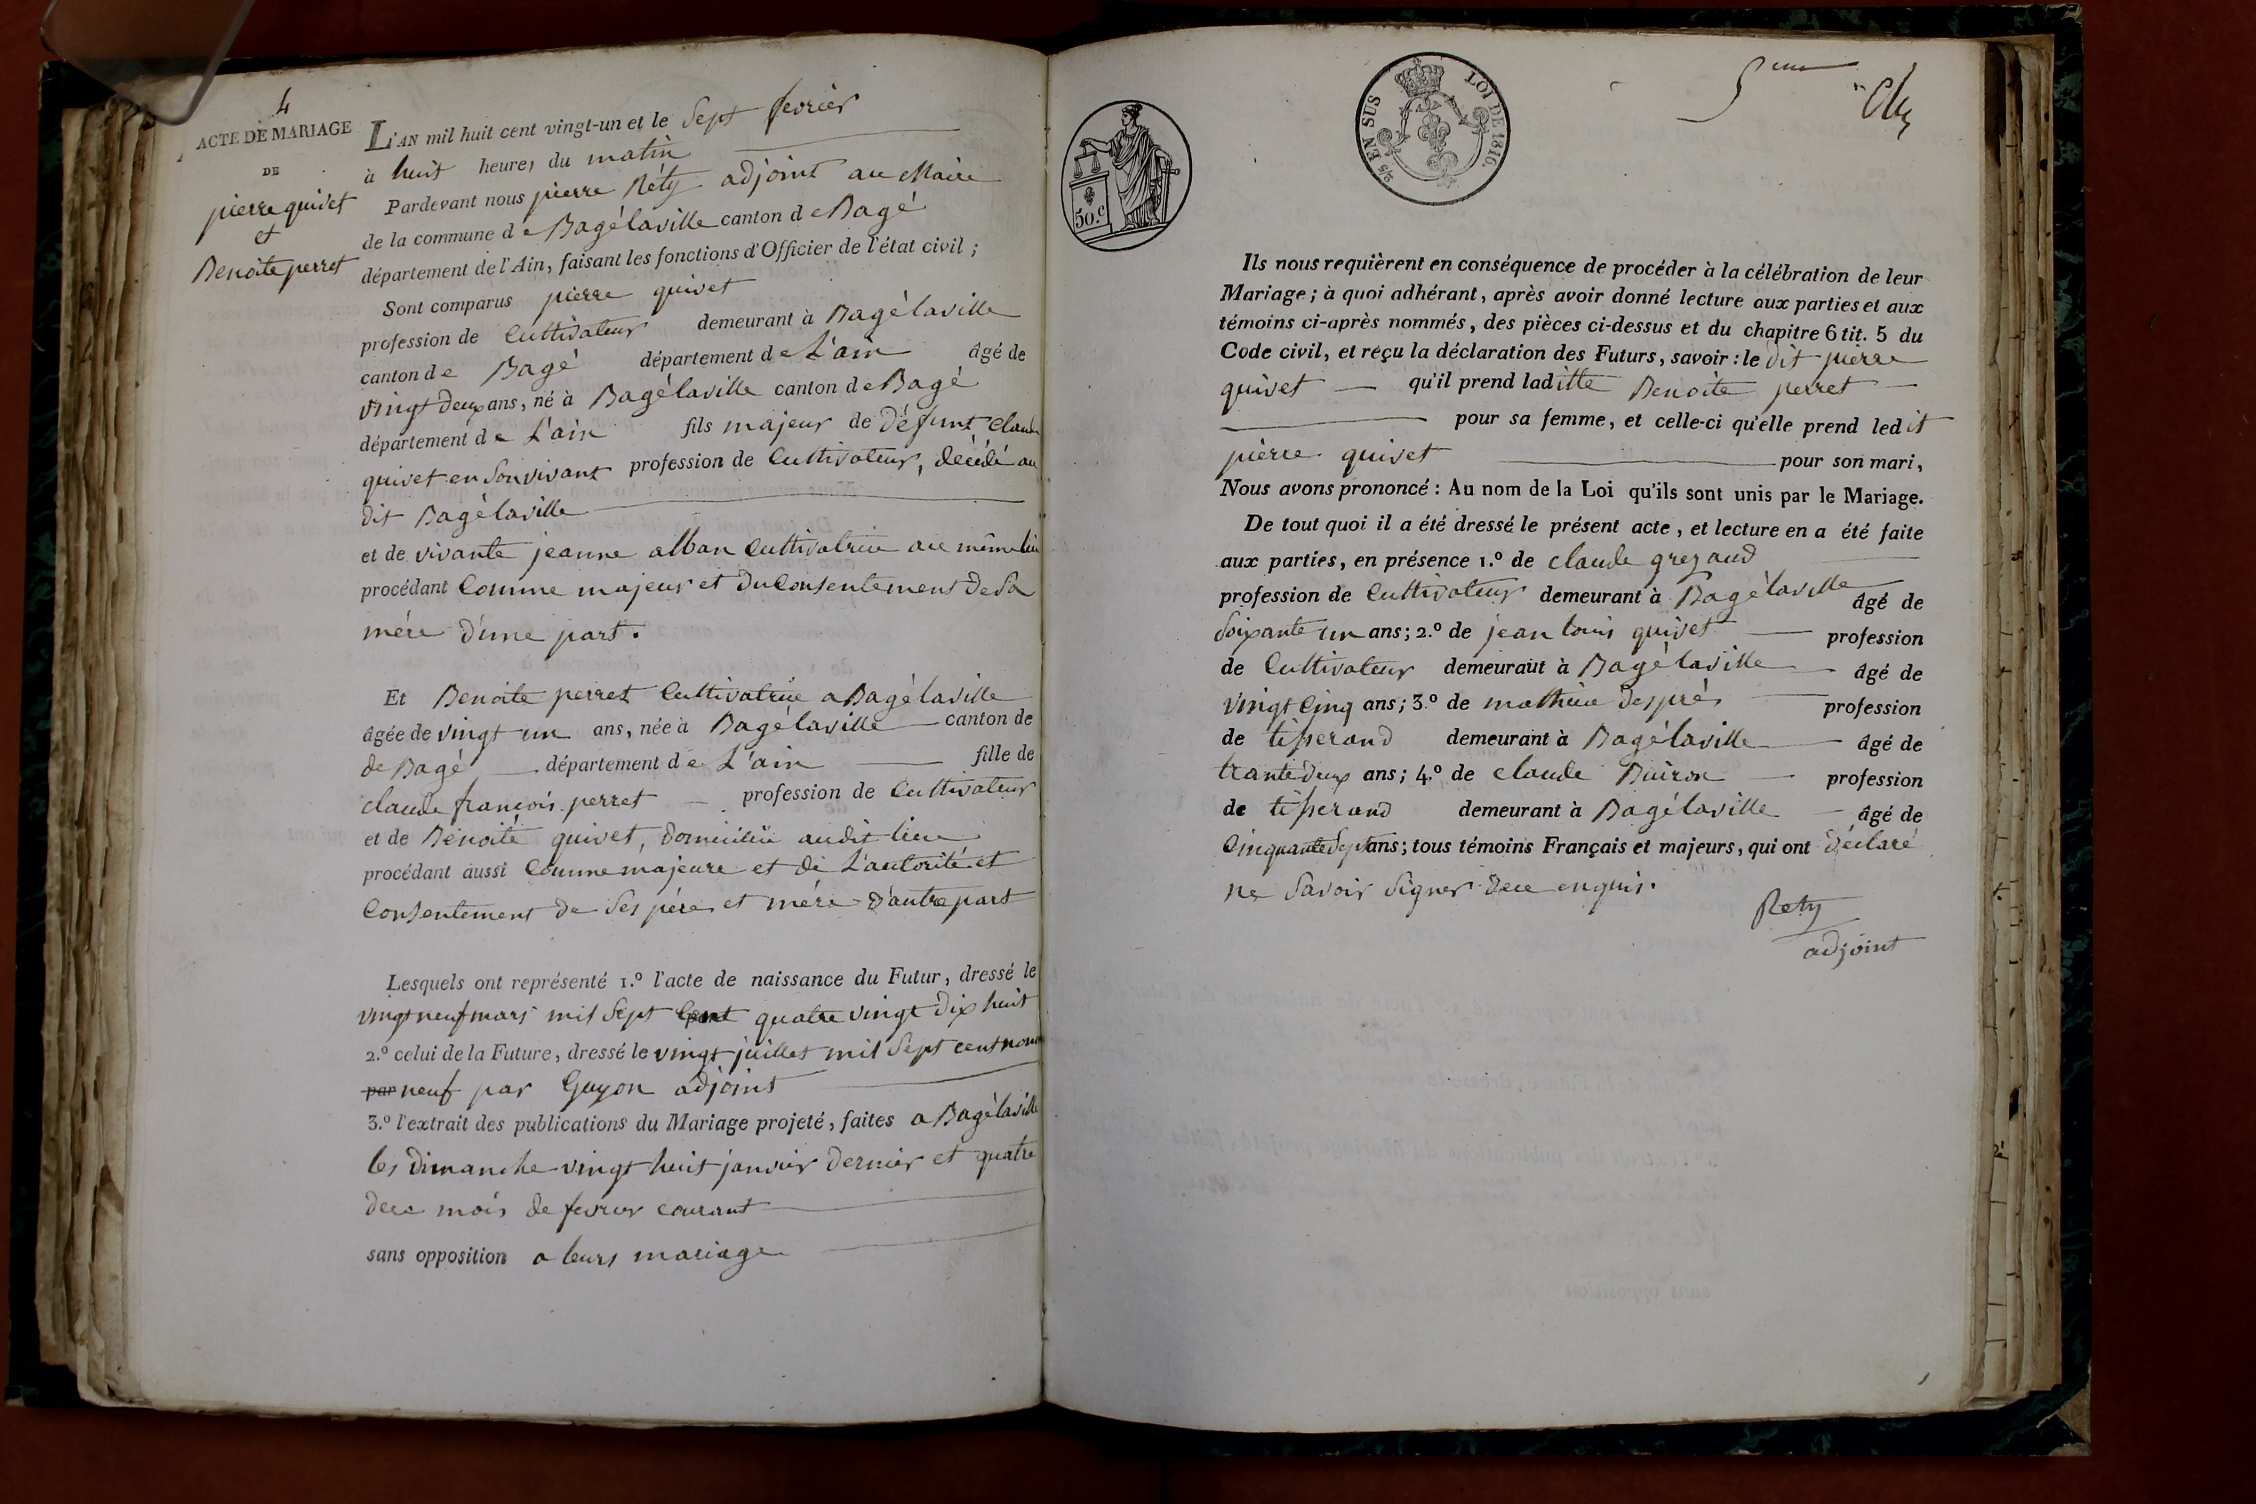 4
ACTE DE MARIAGE
DE
pierre quivet
et
Benoite perret
L'AN mil huit cent vingt-un et le Sept fevrier
à huit heures du matin
Pardevant nous pierre Réty adjoint au Maire
de la commune de Bagélaville canton de Bagé
département de l'Ain, faisant les fonctions d'Officier de l'état civil ;
Sont comparus pierre quivet
profession de Cultivateur demeurant à Bagélaville
canton de Bagé département de L'ain âgé de
vingt deux ans, né à Bagélaville canton de Bagé
département de L'ain fils majeur de défunt Claude
quivet en Son vivant profession de Cultivateur, décédé au
dit Bagélaville
et de vivante jeanne alban Cultivatrice au même lieu
procédant Comme majeur et du Consentement de Sa
mére d'une part.
Et Benoite perret Cultivatrice a Bagélaville
âgée de vingt un ans, née à Bagélaville canton de
de Bagé département de L'ain fille de
claude françois perret profession de Cultivateur
et de Benoite quivet, domicilié audit lieu
procédant aussi Comme majeure et de L'autorité et
Consentement de Ses pére et mére d'autre part
Lesquels ont représenté 1.º l'acte de naissance du Futur, dressé le
vingt neuf mars mil Sept Cent quatre vingt dix huit
2.º celui de la Future, dressé le vingt juillet mil Sept cent nonante
par neuf par Guyon adjoint
3.º l'extrait des publications du Mariage projeté, faites a Bagélaville
les dimanche vingt huit janvier dernier et quatre
du mois de fevrier courant
sans opposition a leurs mariage
50.c
2/5 EN SUS
LOI DE 1816.
5eme
Ils nous requièrent en conséquence de procéder à la célébration de leur
Mariage ; à quoi adhérant, après avoir donné lecture aux parties et aux
témoins ci-après nommés, des pièces ci-dessus et du chapitre 6 tit. 5 du
Code civil, et reçu la déclaration des Futurs, savoir : le dit pierre
quivet qu'il prend laditte Benoite perret
pour sa femme, et celle-ci qu'elle prend ledit
pierre quivet pour son mari,
Nous avons prononcé : Au nom de la Loi qu'ils sont unis par le Mariage.
De tout quoi il a été dressé le présent acte, et lecture en a été faite
aux parties, en présence 1.º de claude grezaud
profession de Cultivateur demeurant à Bagélaville âgé de
Soixante un ans ; 2.º de jean louis quivet profession
de Cultivateur demeurant à Bagélaville âgé de
vingt Cinq ans ; 3.º de mathieu després profession
de tisserand demeurant à Bagélaville âgé de
trante deux ans ; 4.º de claude Buiron profession
de tisserand demeurant à Bagélaville âgé de
Cinquante Sept ans ; tous témoins Français et majeurs, qui ont déclaré
ne Savoir Signer de ce enquis.
Rety
adjoint